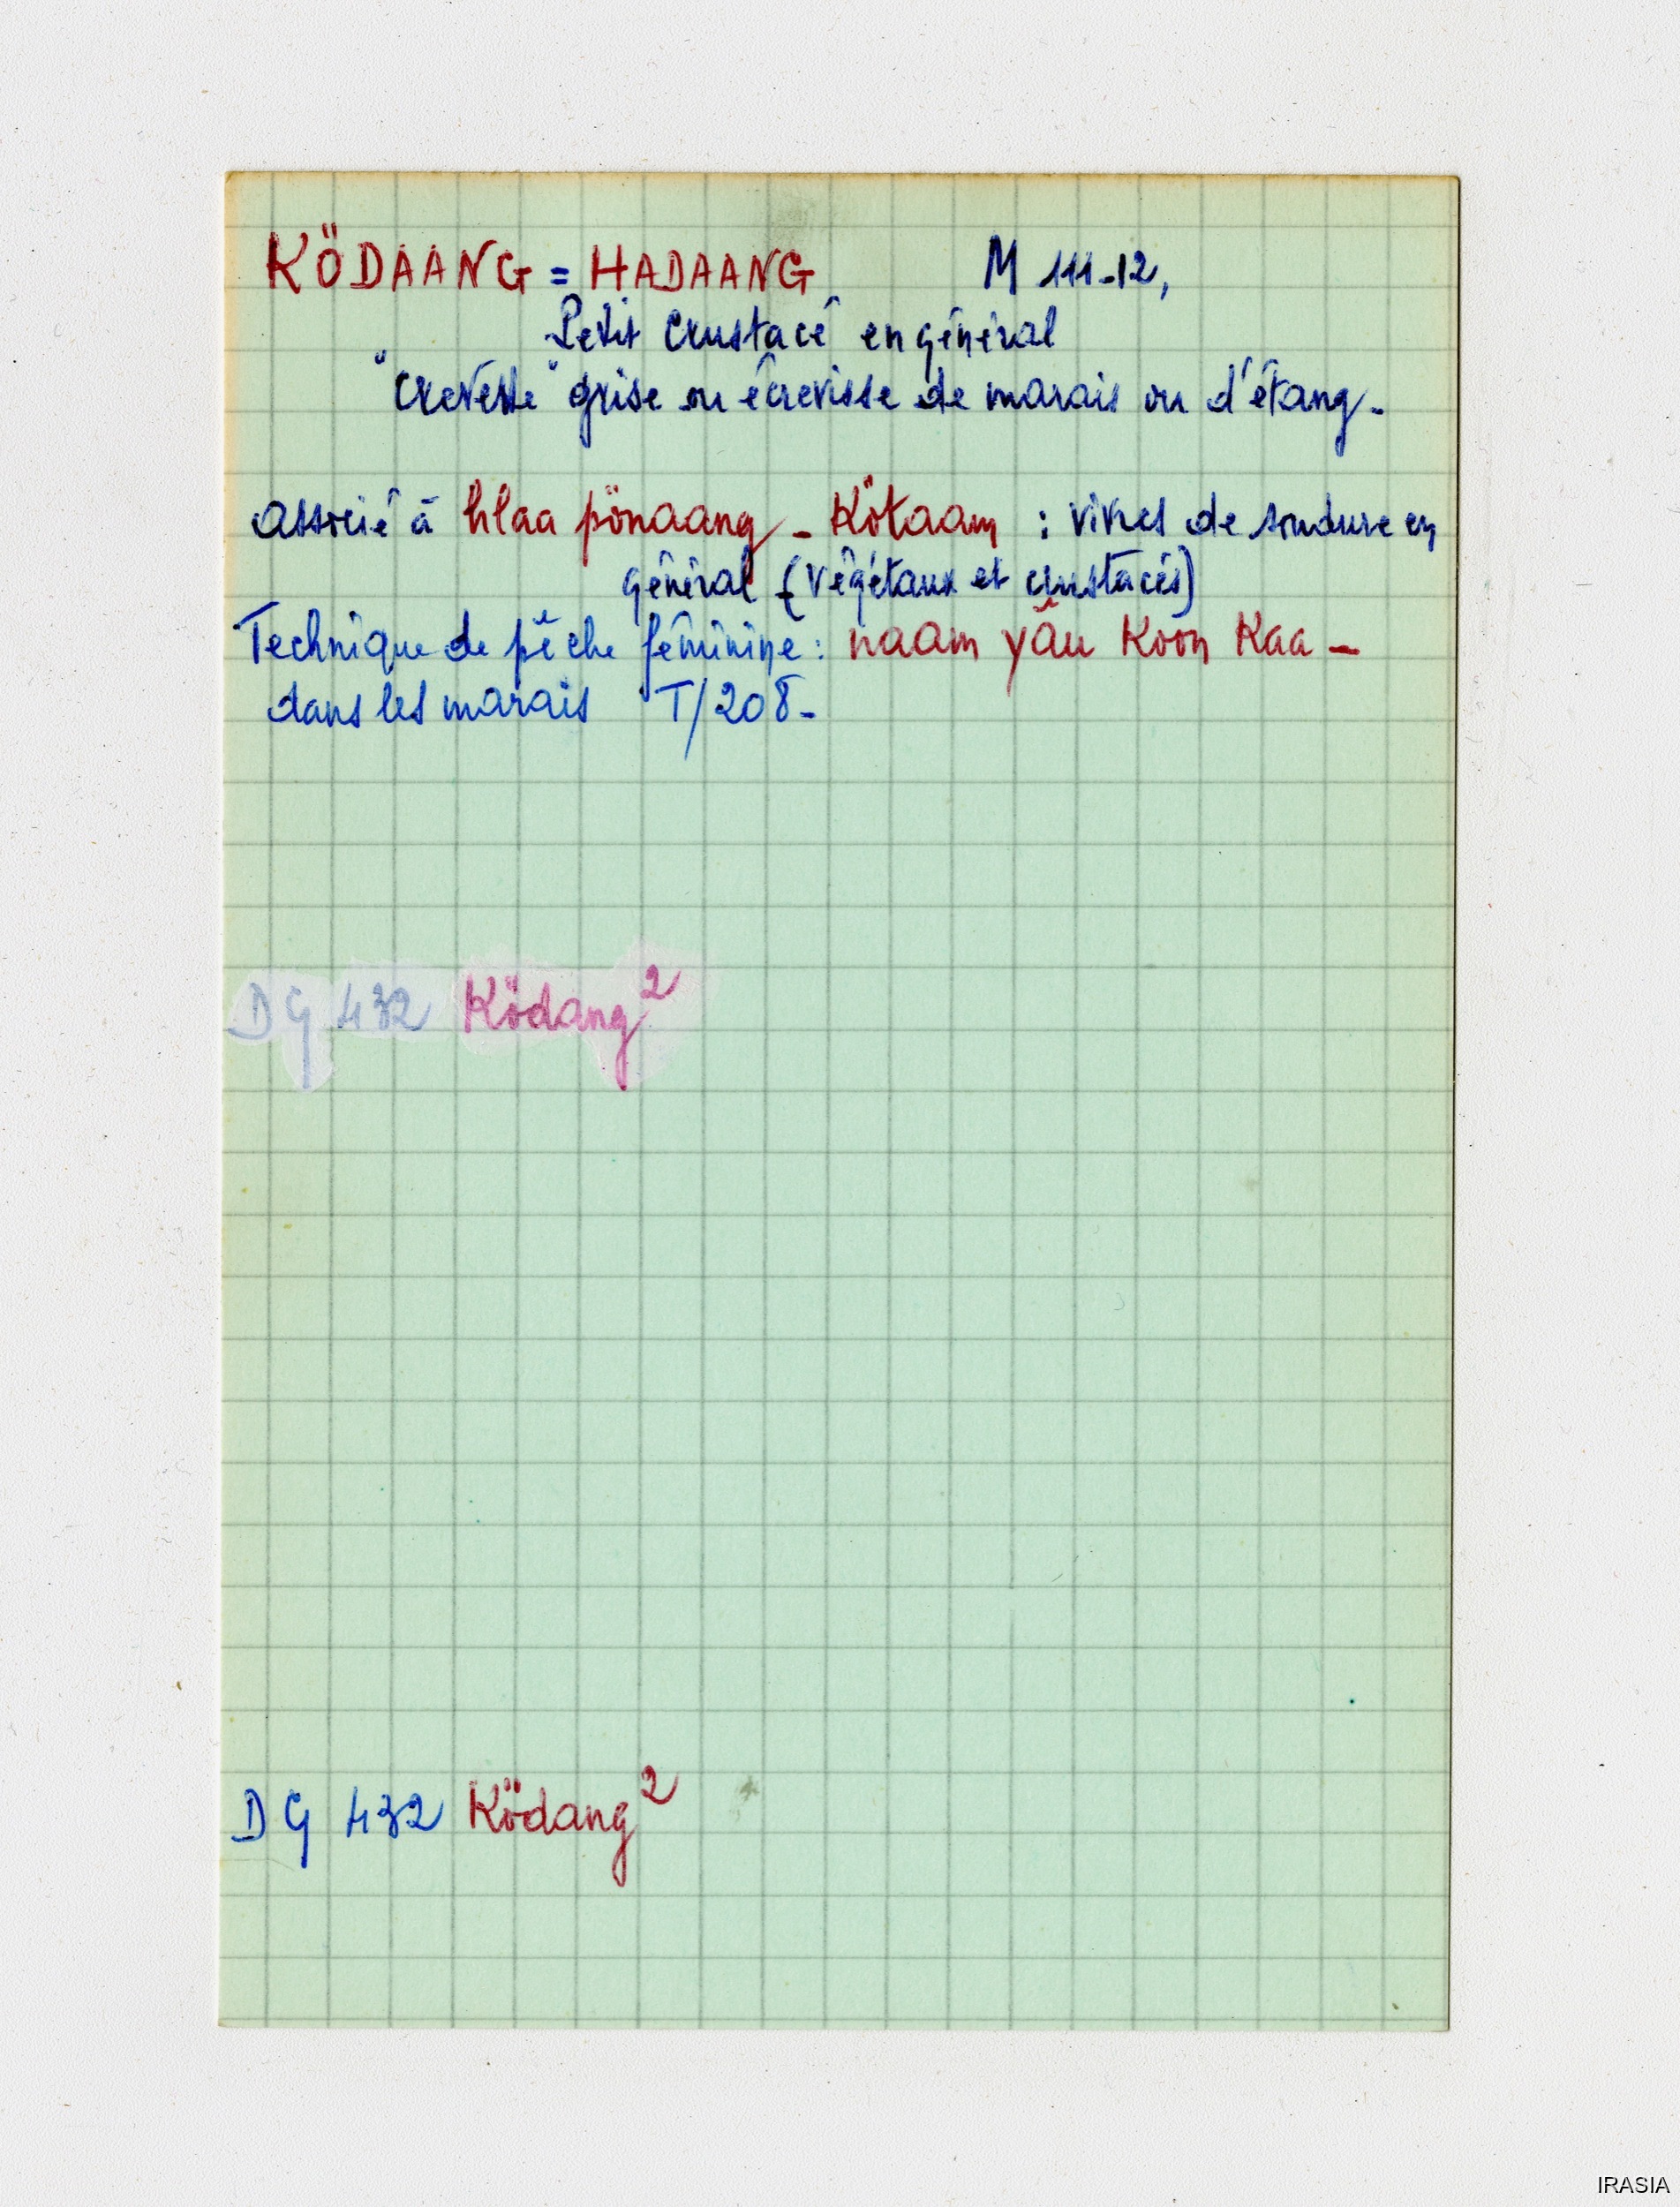 KÖDAANG = HADAANG M 111-12,
Petit Crustacé en général
"Crevette" grise ou écrevisse de marais ou d'étang -
associé à hlaa pönaang - Kötaam : vivres de soudure en
général (végétaux et crustacés)
Technique de pêche féminine : naam yâu Koon Kaa -
dans les marais T/208 -
DG 432 Ködang²
DG 432 Ködang²
IRASIA